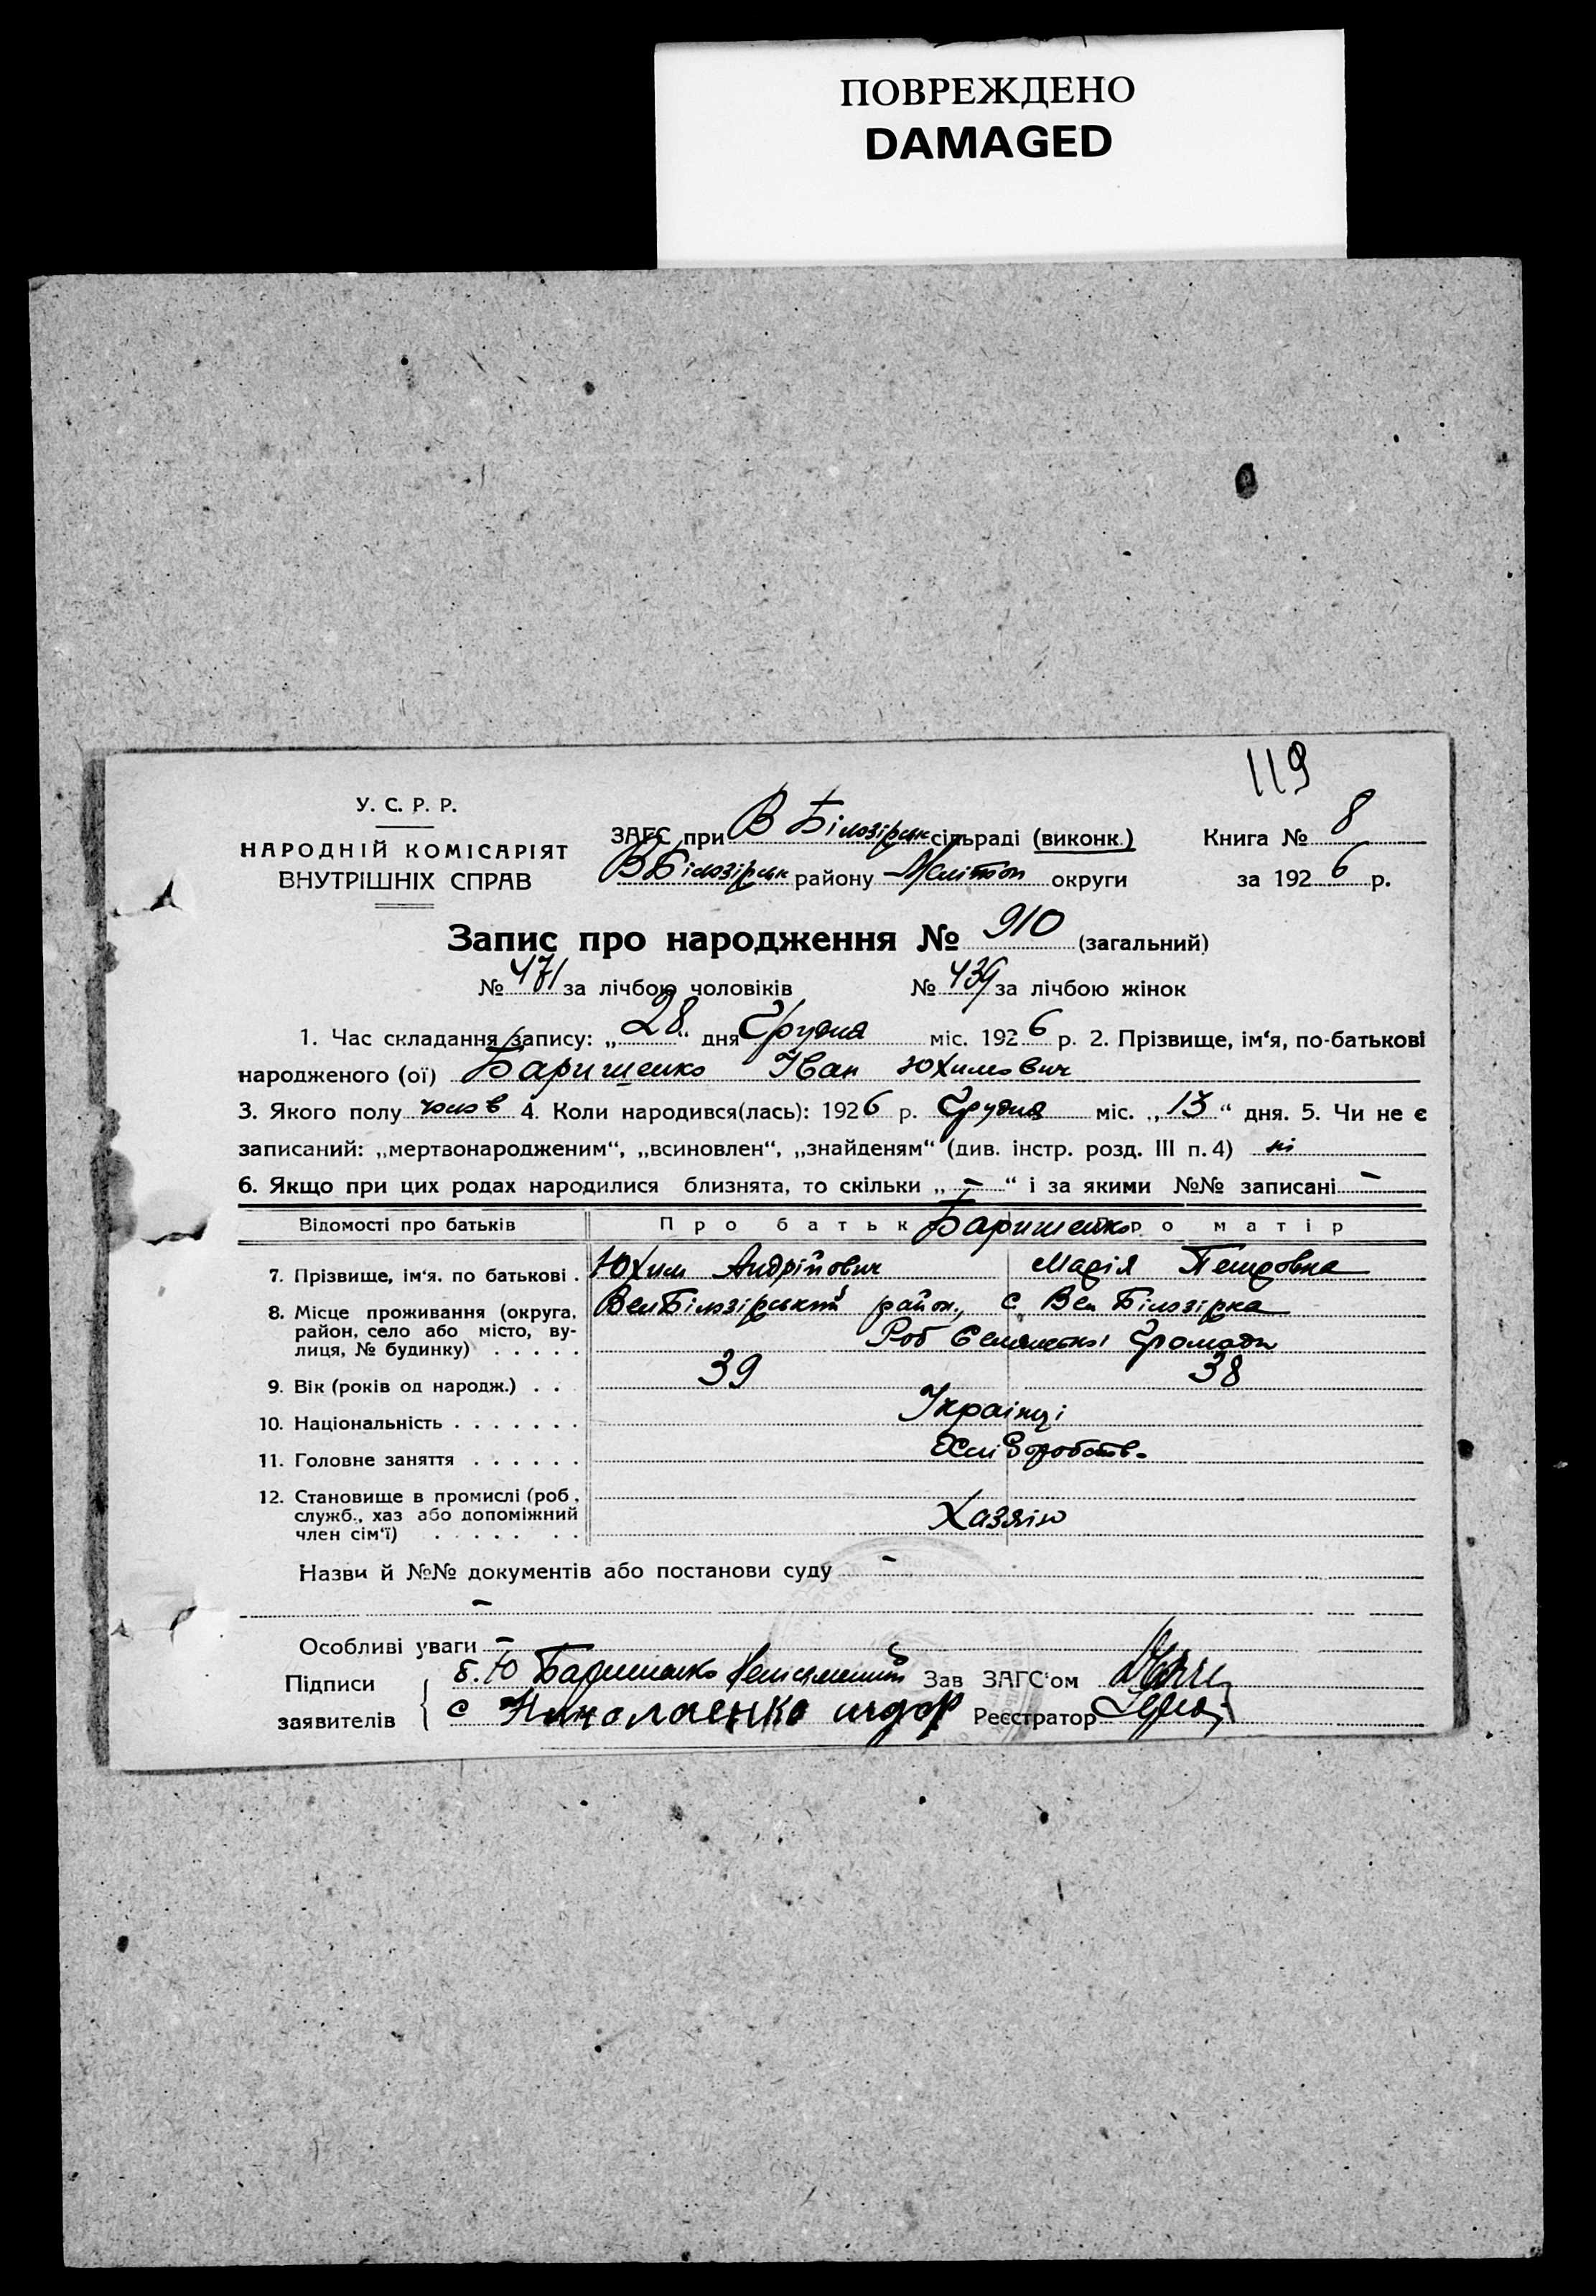 ПОВРЕЖДЕНО
DAMAGED
119
У. С. Р. Р.
НАРОДНІЙ КОМІСАРІЯТ
ВНУТРІШНІХ СПРАВ
ЗАГС при В Білозірськ сільраді (виконк.) Книга № 8
ВБілозірськ району Мелітоп округи за 1926 р.
Запис про народження № 910 (загальний)
№ 471 за лічбою чоловіків № 439 за лічбою жінок
1. Час складання запису: „28“ дня Грудня міс. 1926 р. 2. Прізвище, ім‘я, по-батькові
народженого (ої) Баришенко Іван Юхимович
3. Якого полу чолов 4. Коли народився(лась): 1926 р. Грудня міс. „13“ дня. 5. Чи не є
записаний: „мертвонародженим“, „всиновлен“, „знайденям“ (див. інстр. розд. III п. 4) ні
6. Якщо при цих родах народилися близнята, то скільки „-“ і за якими №№ записані -
Відомості про батьків Про батьк Баришенко ро матір
7. Прізвище, ім‘я, по батькові . Юхим Андрійович Марія Петровна
8. Місце проживання (округа, ВелБілозірський район, с Вел Білозірка
район, село або місто, ву-
лиця, № будинку) . . . . . Роб Селянської Громади
9. Вік (років од народж.) . . 39 38
10. Національність . . . . . . . Українці
11. Головне заняття . . . . . . Хліборобств.
12. Становище в промислі (роб.,
служб., хаз або допоміжний
член сім‘ї) . . . . . . . Хазяїн
Назви й №№ документів або постанови суду -
-
Особливі уваги -
Підписи б. Ю Баришенко Зав ЗАГС‘ом
заявителів с Николаенко Реєстратор